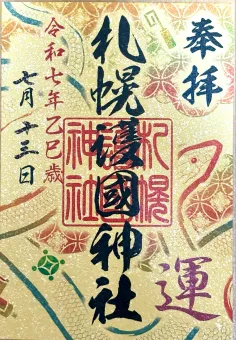 奉拝
札幌護國神社
札幌
神社
運
令和七年乙巳歳
七月十三日